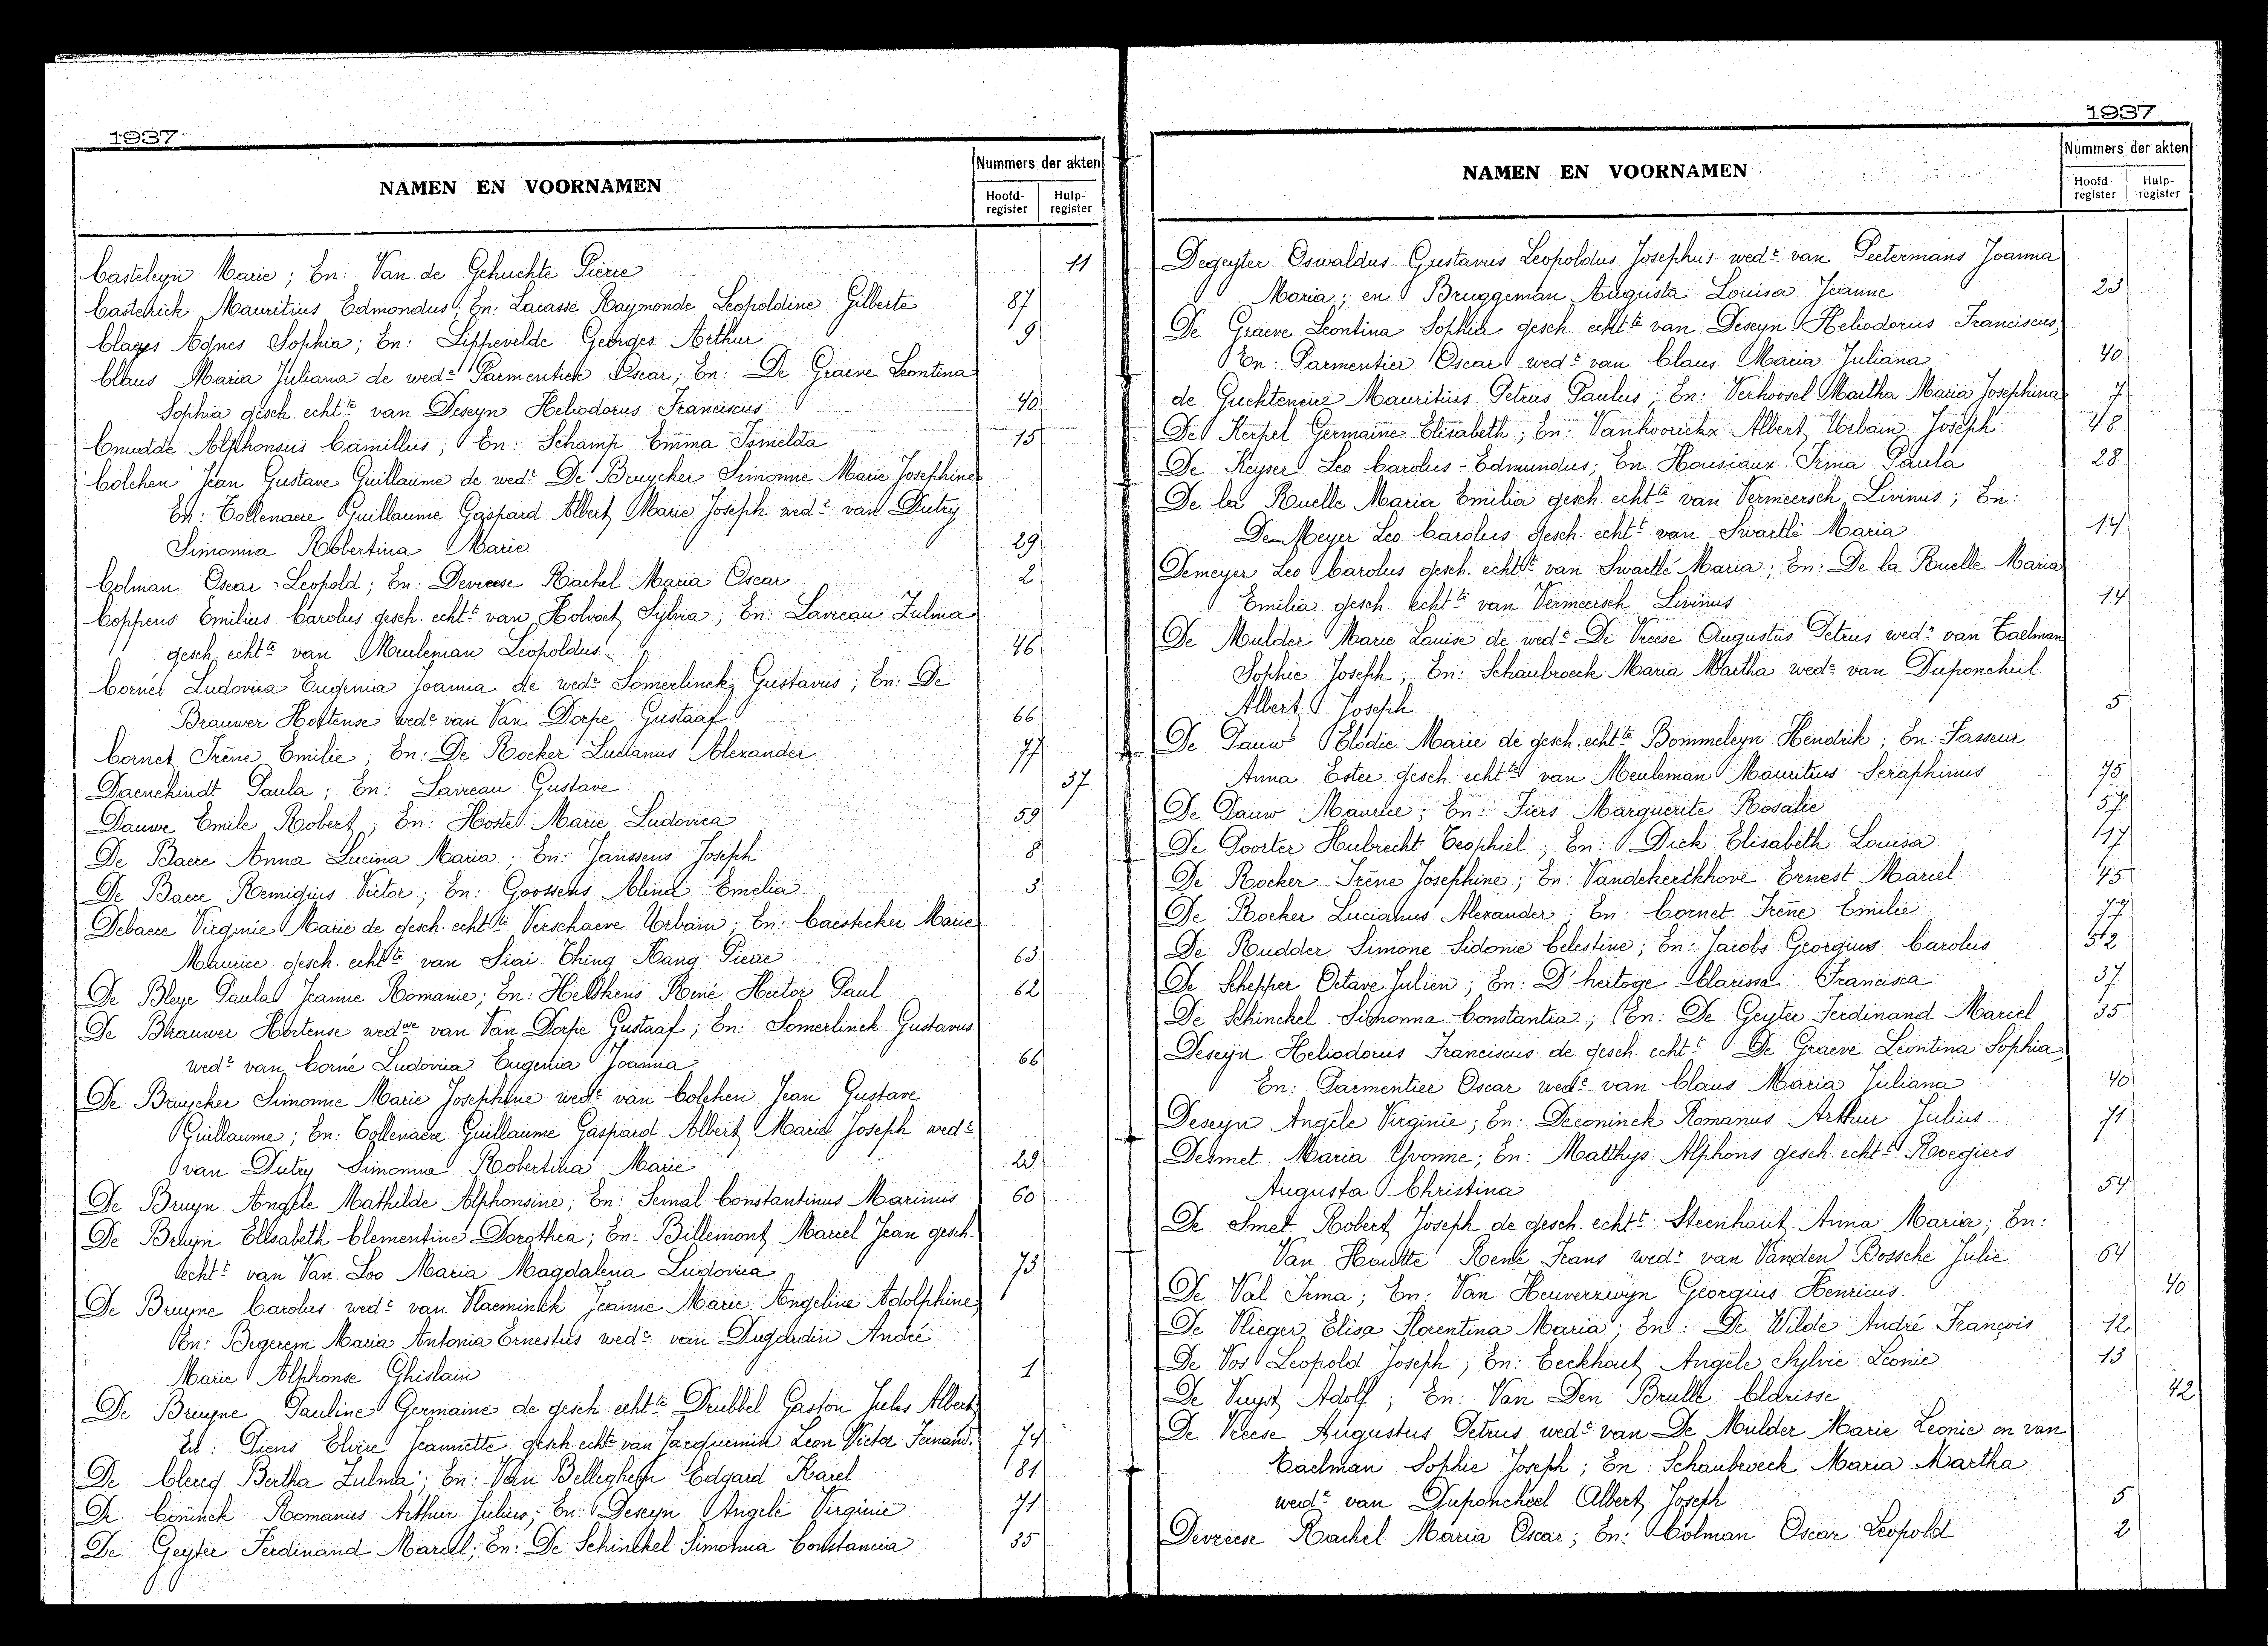 1937
NAMEN EN VOORNAMEN
Nummers der akten
Hoofd-register
Hulp-register
Casteleyn Marie; En: Van de Gehuchte Pierre 11
Castelrick Mauritius Edmondus; En: Lacasse Raymonde Leopoldine Gilberte 87
Clayes Agnes Sophia; En: Lippevelde Georges Arthur 9
Claus Maria Juliana de wedr Parmentier Oscar; En: De Graeve Leontina
Sophia gesch. echtte van Deseyn Heliodorus Franciscus 40
Cnudde Alphonsus Camillus; En: Schamp Emma Ismelda 15
Colchen Jean Gustave Guillaume de wede De Bruycker Simonne Marie Josephine
En: Tollenaere Guillaume Gaspard Albert Marie Joseph wedr van Dutry
Simonna Robertina Marie 29
Colman Oscar Leopold; En: Devreese Rachel Maria Oscar 2
Coppens Emilius Carolus gesch. echtt van Holvoet Sylvia; En: Laureau Zulma
gesch. echtte van Meuleman Leopoldus 46
Corné Ludovica Eugenia Joanna de wedr Somerlinck Gustavus; En: De
Brauwer Hortense wede van Van Dorpe Gustaaf 66
Cornet Irène Emilie; En: De Rocker Lucianus Alexander 77
Daenekindt Paula; En: Laureau Gustave 37
Dauwe Emile Robert; En: Hoste Marie Ludovica 59
De Baere Anna Lucina Maria; En: Janssens Joseph 8
De Baere Remigius Victor; En: Goossens Alina Emelia 3
Debaere Virginie Marie de gesch. echtte Verschaeve Urbain; En: Caestecker Marie
Maurice gesch. echtte van Siai Thing Kang Pierre 63
De Bleye Paula Jeanne Romanie; En: Helskens René Hector Paul 62
De Brauwer Hortense wedwe van Van Dorpe Gustaaf; En: Somerlinck Gustavus
wedr van Corné Ludovica Eugenia Joanna 66
De Bruycker Simonne Marie Josephine wede van Colchen Jean Gustave
Guillaume; En: Tollenaere Guillaume Gaspard Albert Marie Joseph wedr
van Dutry Simonna Robertina Marie 29
De Bruyn Angèle Mathilde Alphonsine; En: Semal Constantinus Marinus 60
De Bruyn Elisabeth Clementine Dorothea; En: Billemont Marcel Jean gesch.
echtt van Van Loo Maria Magdalena Ludovica 73
De Bruyne Carolus wedr van Vlaeminck Jeanne Marie Angeline Adolphine
En: Begerem Maria Antonia Ernestus wede van Dugardin André
Marie Alphonse Ghislain 1
De Bruyne Pauline Germaine de gesch. echtte Drubbel Gaston Jules Albert
En: Piens Elvire Jeannette gesch. echte van Jacquemin Leon Victor Fernand. 74
De Clercq Bertha Zulma; En: Van Belleghem Edgard Karel 81
De Coninck Romanus Arthur Julius; En: Deseyn Angelé Virginie 71
De Geyter Ferdinand Marcel; En: De Schinckel Simonna Constancia 35
1937
NAMEN EN VOORNAMEN
Nummers der akten
Hoofd-register
Hulp-register
Degeyter Oswaldus Gustavus Leopoldus Josephus wedr van Peetermans Joanna
Maria; en Bruggeman Augusta Louisa Jeanne 23
De Graeve Leontina Sophia gesch. echtte van Deseyn Heliodorus Franciscus,
En: Parmentier Oscar wedr van Claus Maria Juliana 40
de Guchteneire Mauritius Petrus Paulus; En: Verhoosel Martha Maria Josephina 7
De Kerpel Germaine Elisabeth; En: Vanhoorickx Albert Urbain Joseph 48
De Keyser Leo Carolus-Edmundus; En Housiaux Irma Paula 28
De la Ruelle Maria Emilia gesch. echtte van Vermeersch Livinus; En:
De Meyer Leo Carolus gesch. echtt van Swartlé Maria 14
Demeyer Leo Carolus gesch. echtt van Swartlé Maria; En: De la Ruelle Maria
Emilia gesch. echtte van Vermeersch Livinus 14
De Mulder Marie Louise de wede De Vreese Augustus Petrus wedr van Taelman
Sophie Joseph; En: Schaubroeck Maria Martha wede van Duponcheel
Albert Joseph 5
De Pauw Elodie Marie de gesch. echtte Bommeleyn Hendrik; En: Fasseur
Anna Ester gesch. echtte van Meuleman Mauritius Seraphinus 75
De Pauw Maurice; En: Fiers Marguerite Rosalie 57
De Poorter Hubrecht Teophiel; En: Dick Elisabeth Louisa 17
De Rocker Irène Josephine; En: Vandekerckhove Ernest Marcel 45
De Rocker Lucianus Alexander; En: Cornet Irène Emilie 77
De Rudder Simone Sidonie Celestine; En: Jacobs Georgius Carolus 52
De Schepper Octave Julien; En: D'hertoge Clarissa Francisca 37
De Schinckel Simonna Constantia; En: De Geyter Ferdinand Marcel 35
Deseyn Heliodorus Franciscus de gesch. echtt De Graeve Leontina Sophia,
En: Parmentier Oscar wedr van Claus Maria Juliana 40
Deseyn Angèle Virginie; En: Deconinck Romanus Arthur Julius 71
Desmet Maria Yvonne; En: Matthys Alphons gesch. echtt Roegiers
Augusta Christina 54
De Smet Robert Joseph de gesch. echtt Steenhaut Anna Maria; En:
Van Houtte René Frans wedr van Vanden Bossche Julie 64
De Val Irma; En: Van Heuverzwijn Georgius Henricus 40
De Vlieger Elisa Florentina Maria; En: De Wilde André François 12
De Vos Leopold Joseph; En: Eeckhaut Angèle Sylvie Leonie 13
De Vuyst Adolf; En: Van Den Brulle Clarisse 42
De Vreese Augustus Petrus wedr van De Mulder Marie Leonie en van
Taelman Sophie Joseph; En: Schaubroeck Maria Martha
wede van Duponcheel Albert Joseph 5
Devreese Rachel Maria Oscar; En: Colman Oscar Leopold 2